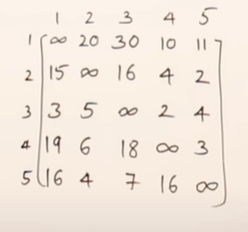 1 2 3 4 5
1 ∞ 20 30 10 11
2 15 ∞ 16 4 2
3 3 5 ∞ 2 4
4 19 6 18 ∞ 3
5 16 4 7 16 ∞